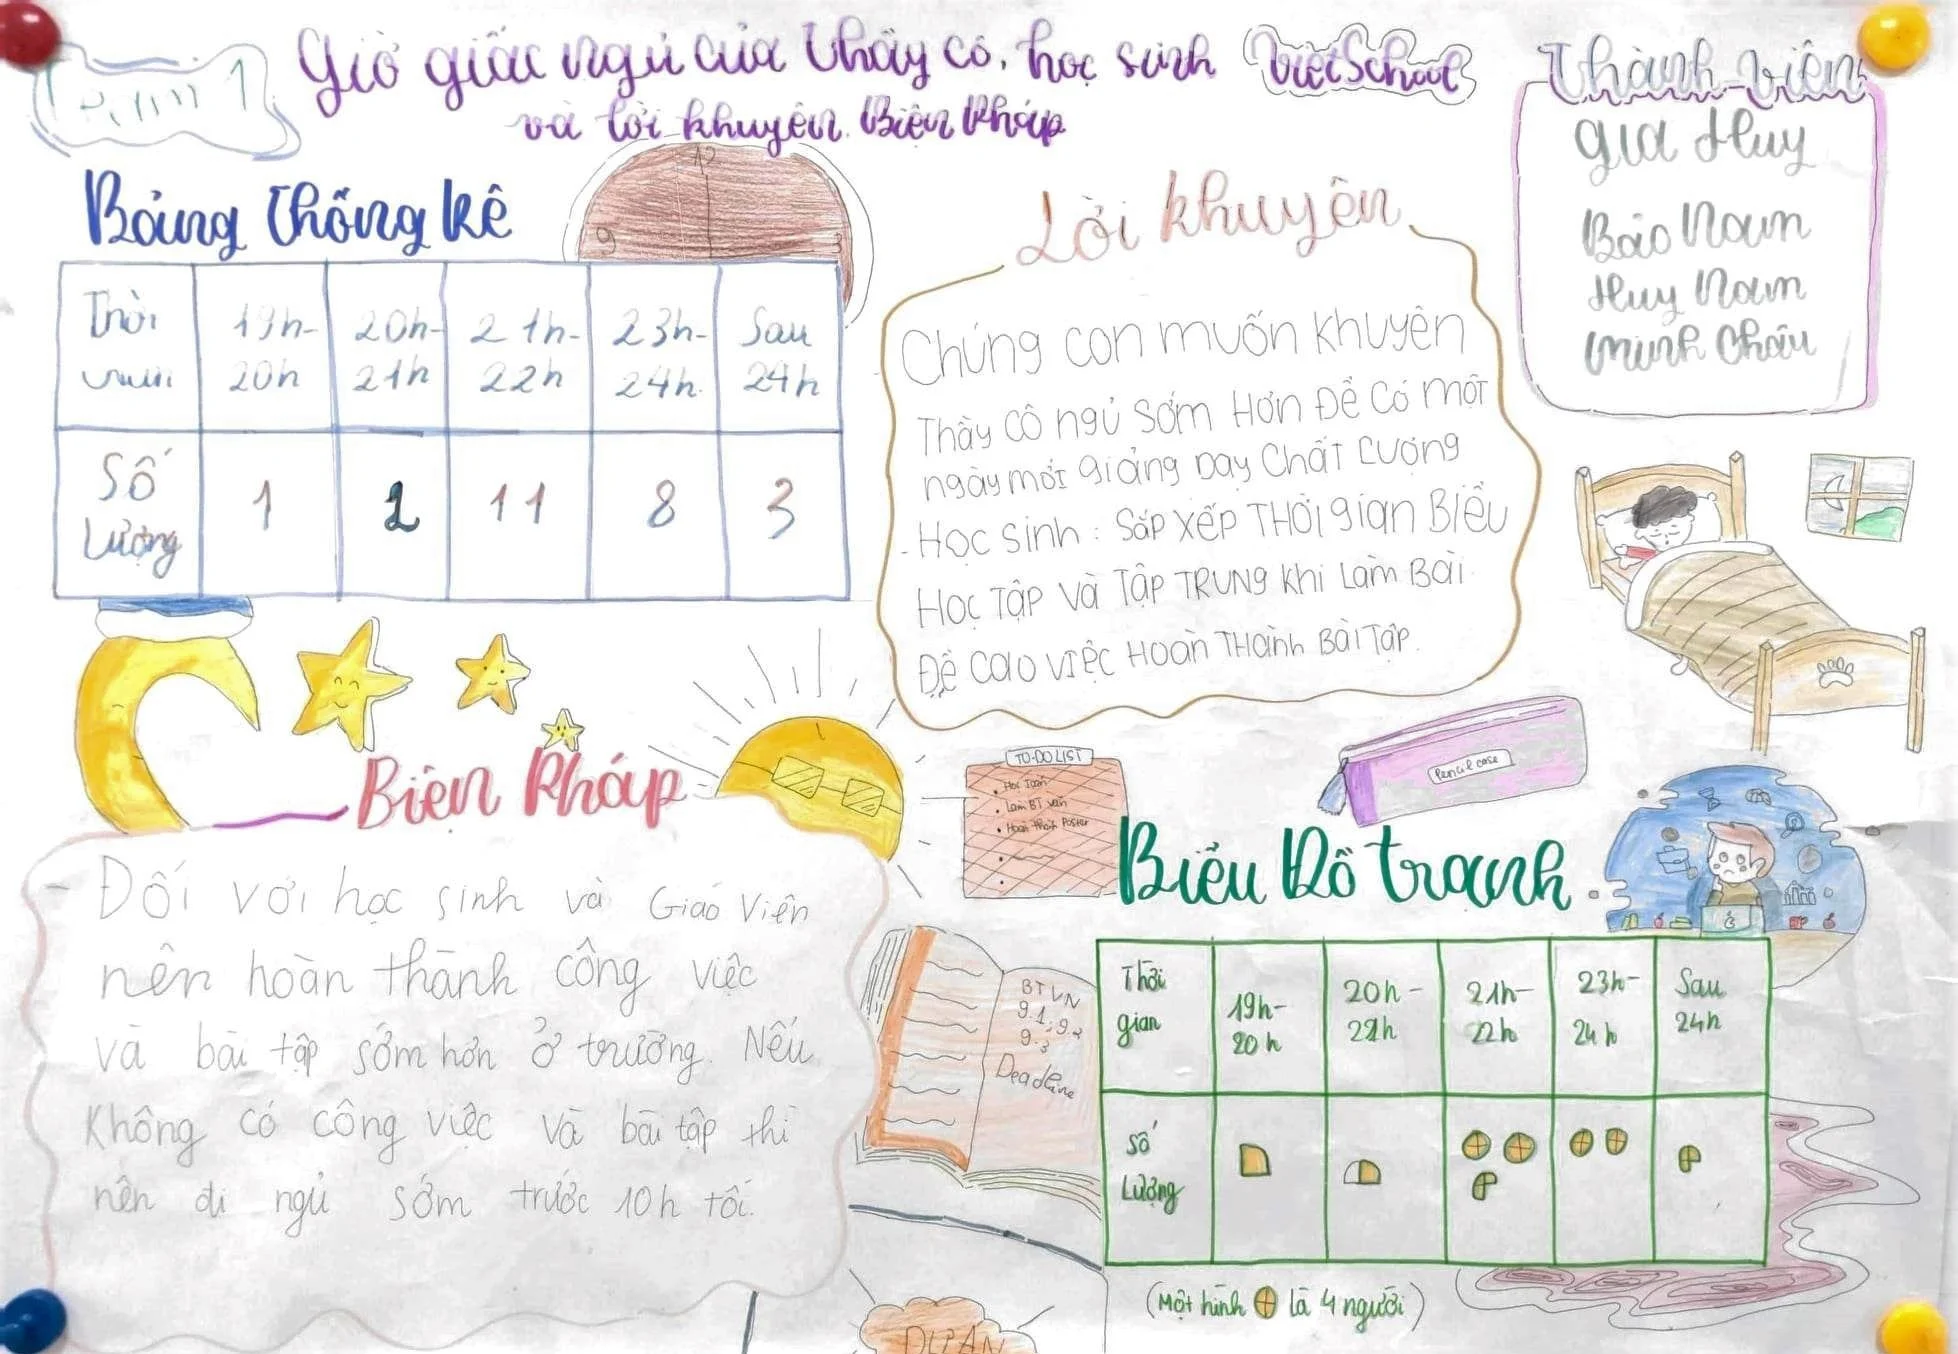 Team 1
Giờ giấc ngủ của thầy cô, học sinh VietSchool
và lời khuyên Biện Pháp
Thành viên
Gia Huy
Bảo Nam
Huy Nam
Minh Châu
Bảng thống kê
12
9
3
Thời
19h-
20h-
21h-
23h-
Sau
20h
21h
22h
24h
24h
Số
Lượng
1
2
11
8
3
Lời khuyên
Chúng con muốn khuyên
Thầy cô ngủ sớm Hơn Để Có một
ngày mới giảng Dạy Chất Lượng
- Học sinh : Sắp xếp THời gian Biểu
Học Tập và Tập TRUNg khi Làm Bài
Đề cao việc Hoàn THành Bài Tập.
Biện Pháp
- Đối với học sinh và Giáo Viên
nên hoàn thành công việc
và bài tập sớm hơn ở trường. Nếu
Không có công việc và bài tập thì
nên đi ngủ sớm trước 10h tối.
TO-DO LIST
• Học Toán
• Làm BT văn
• Hoàn thành Poster
Pencil case
BTVN
9.1; 9.2
9.3
Deadline
Biểu Đồ tranh
Thời
gian
19h-
20h
20h-
21h
21h-
22h
23h-
24h
Sau
24h
Số
Lượng
(Một hình là 4 người)